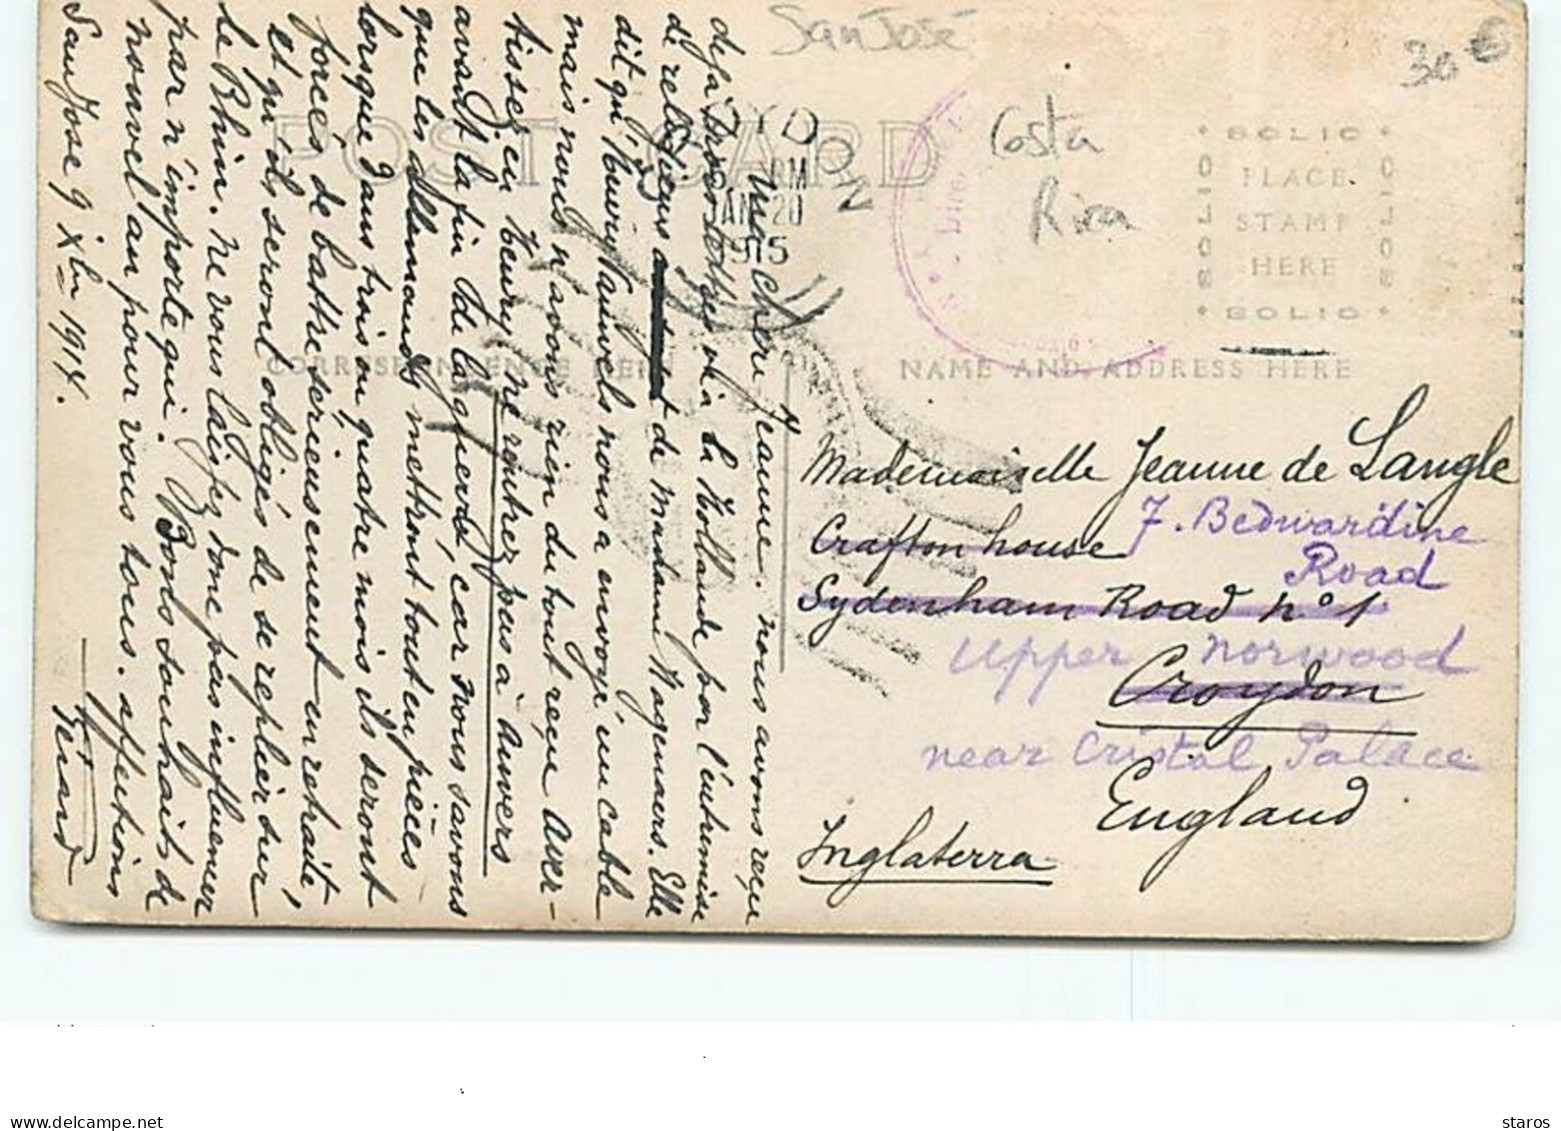 San José
Costa
Rica
30 €
POST CARD
CROYDON
JAN 20
1915
SOLIO
PLACE
STAMP
HERE
SOLIO
SOLIO
SOLIO
CORRESPONDENCE HERE
NAME AND ADDRESS HERE
Ma chère Jeanne. nous avons reçu
deja trois lettres via la Hollande par l'entremise
de religieux et de madame Wagenaers. Elle
dit qu'Henry Vauvels nous a envoyé un cable
mais nous n'avons rien du tout reçu aver-
tissez en Henry, ne rentrez pas à Anvers
avant la fin de la guerre, car nous savons
que les allemands mettront tout en pièces
lorsque dans trois ou quatre mois ils seront
forcés de battre serieusement en retraite,
et qu'ils seront obligés de se replier sur
le Rhin. ne vous laissez donc pas influencer
par n'importe qui. Bons souhaits de
nouvel an pour vous tous. affections
San Jose 9 Xbr 1914.
Mademoiselle Jeanne de Langle
Crafton house
7. Bedwardine
Road
Sydenham Road n° 1
Upper Norwood
Croydon
near Cristal Palace
England
Inglaterra
www.delcampe.net
staros